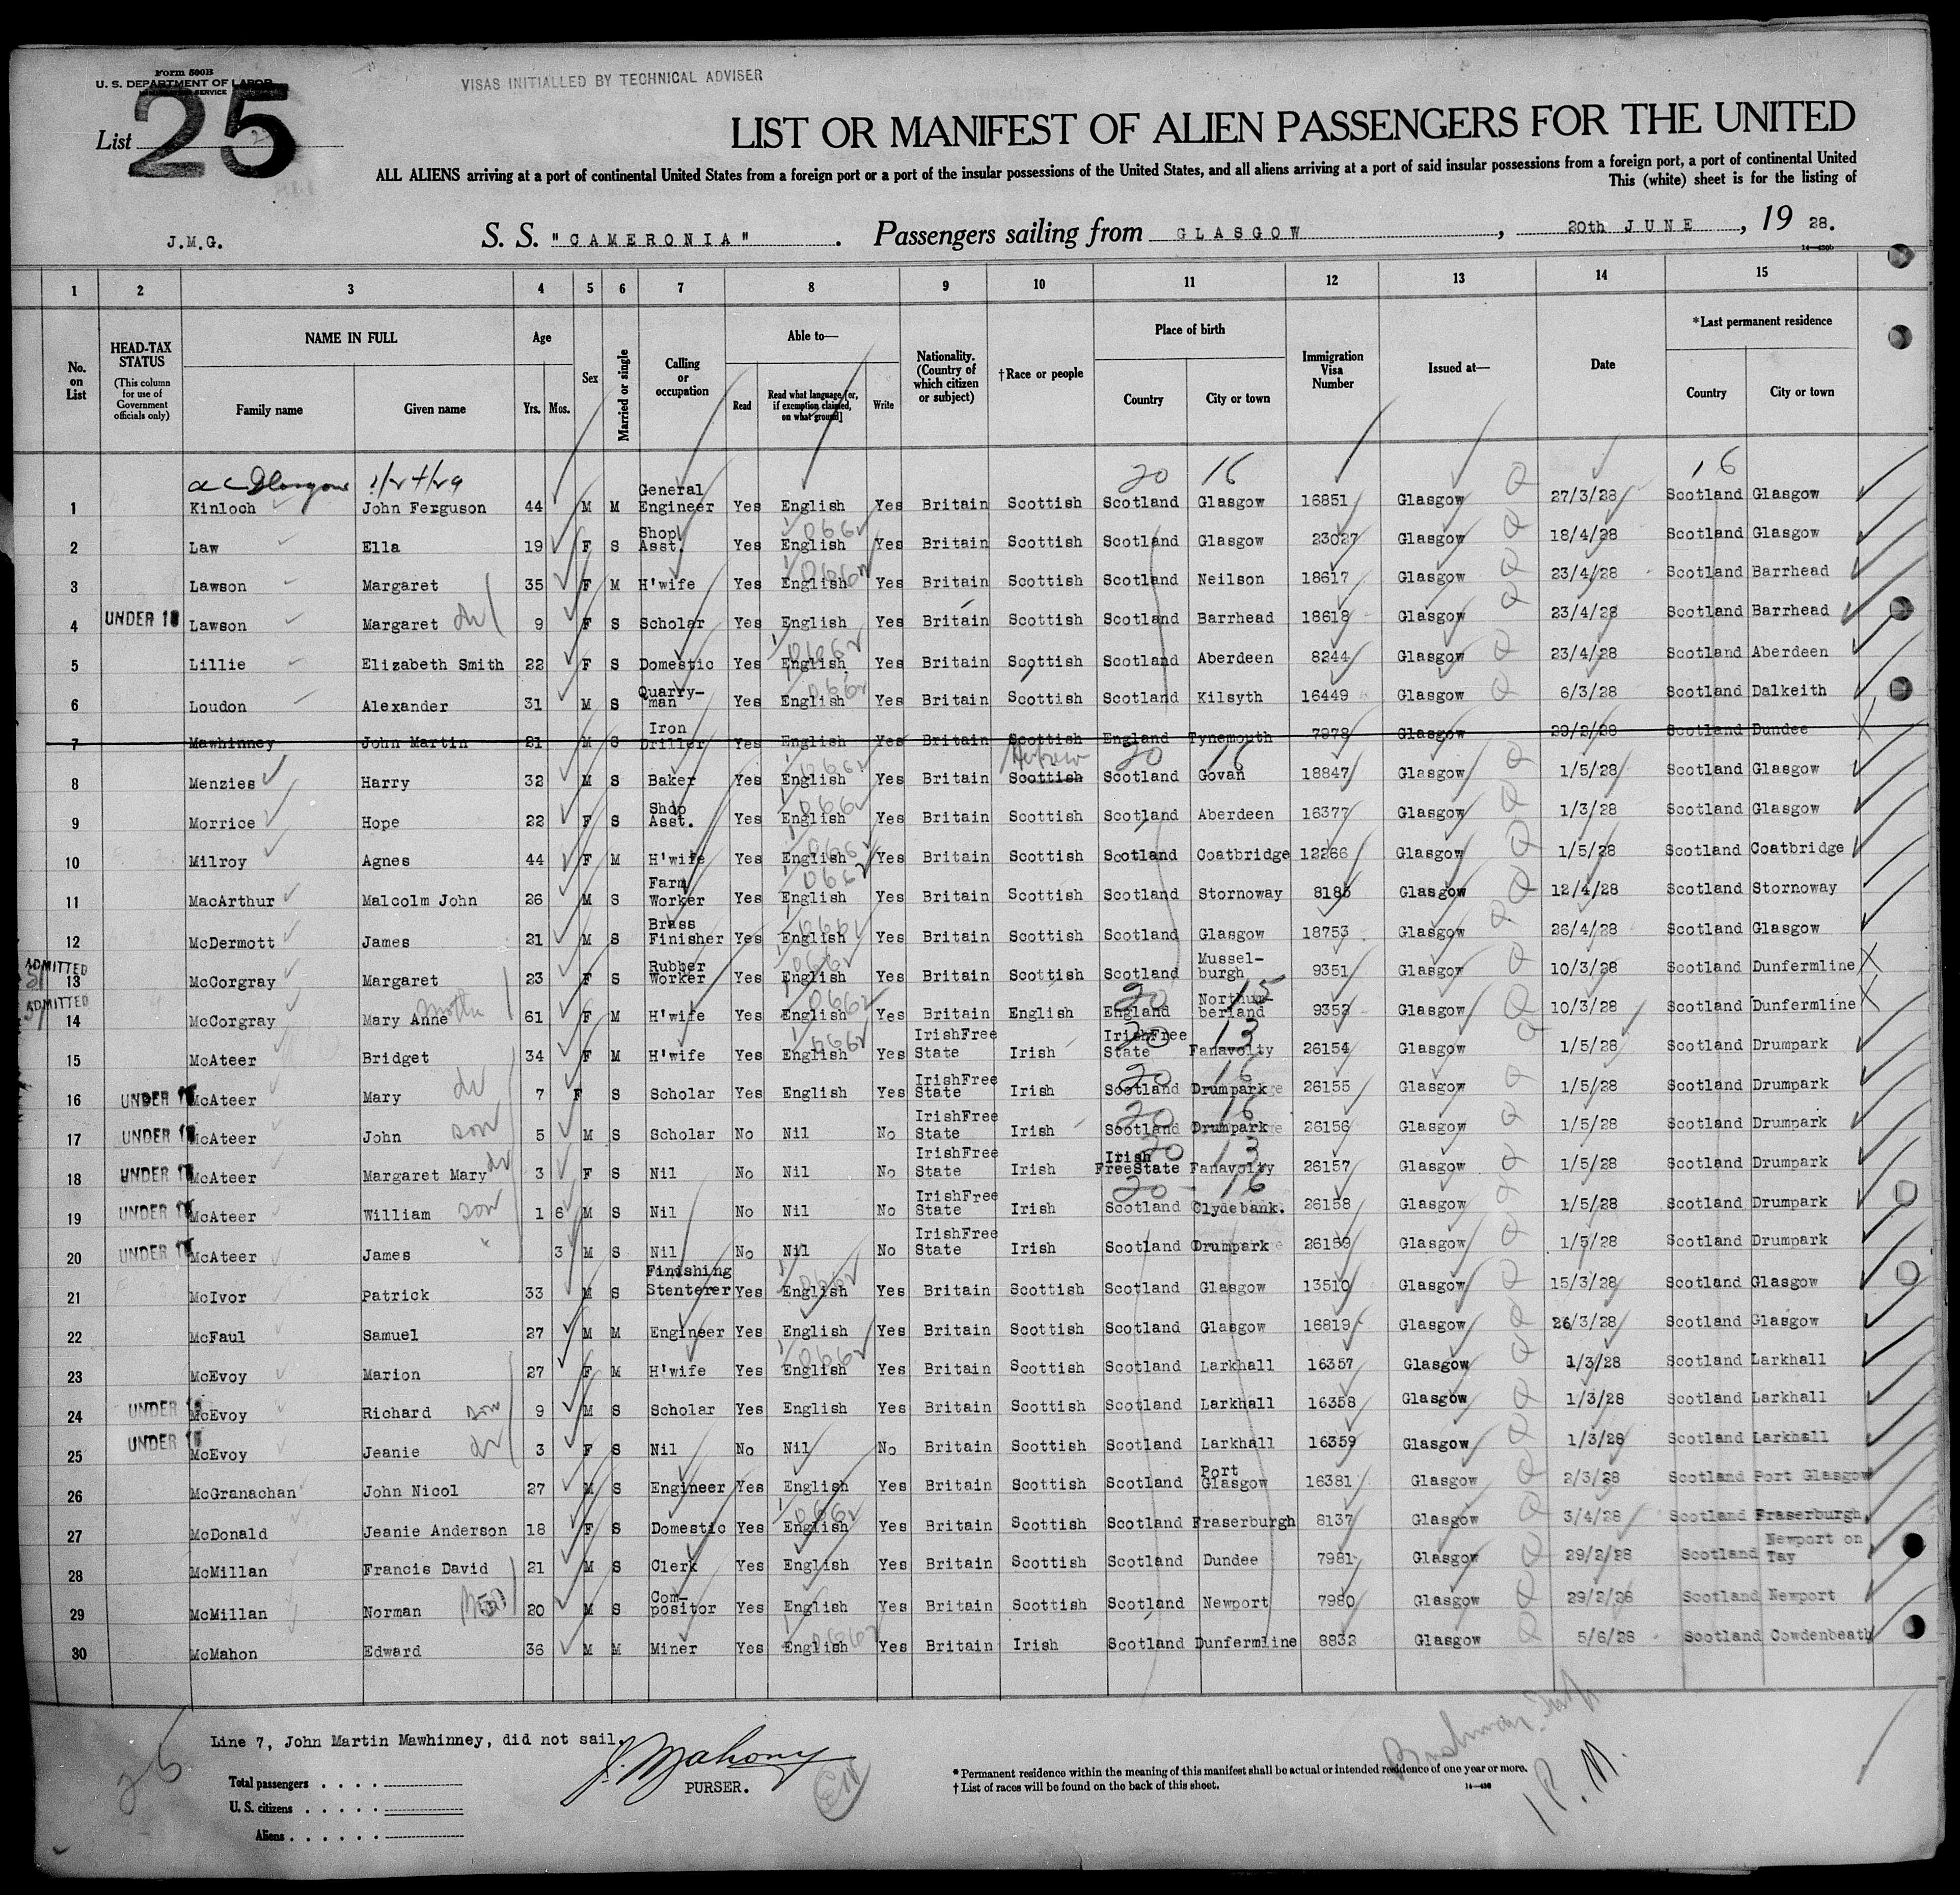 Form 500B
U. S. DEPARTMENT OF LABOR
VISAS INITIALLED BY TECHNICAL ADVISER
List 25
LIST OR MANIFEST OF ALIEN PASSENGERS FOR THE UNITED
ALL ALIENS arriving at a port of continental United States from a foreign port or a port of the insular possessions of the United States, and all aliens arriving at a port of said insular possessions from a foreign port, a port of continental United
This (white) sheet is for the listing of
J.M.G. S. S. "CAMERONIA" . Passengers sailing from GLASGOW , 20th JUNE , 19 28.
1 2 3 4 5 6 7 8 9 10 11 12 13 14 15
No. on List HEAD-TAX STATUS (This column for use of Government officials only) NAME IN FULL Family name Given name Age Yrs. Mos. Sex Married or single Calling or occupation Able to— Read Read what language [or, if exemption claimed, on what ground] Write Nationality. (Country of which citizen or subject) †Race or people Place of birth Country City or town Immigration Visa Number Issued at— Date *Last permanent residence Country City or town
20 16 16
1 Kinloch John Ferguson 44 M M General Engineer Yes English Yes Britain Scottish Scotland Glasgow 16851 Glasgow 27/3/28 Scotland Glasgow
2 Law Ella 19 F S Shop Asst. Yes English Yes Britain Scottish Scotland Glasgow 23027 Glasgow 18/4/28 Scotland Glasgow
3 Lawson Margaret 35 F M H'wife Yes English Yes Britain Scottish Scotland Neilson 18617 Glasgow 23/4/28 Scotland Barrhead
4 UNDER 16 Lawson Margaret 9 F S Scholar Yes English Yes Britain Scottish Scotland Barrhead 18618 Glasgow 23/4/28 Scotland Barrhead
5 Lillie Elizabeth Smith 22 F S Domestic Yes English Yes Britain Scottish Scotland Aberdeen 8244 Glasgow 23/4/28 Scotland Aberdeen
6 Loudon Alexander 31 M S Quarry-man Yes English Yes Britain Scottish Scotland Kilsyth 16449 Glasgow 6/3/28 Scotland Dalkeith
7 Mawhinney John Martin 21 M S Iron Driller Yes English Yes Britain Scottish England Tynemouth 7978 Glasgow 29/2/28 Scotland Dundee
8 Menzies Harry 32 M S Baker Yes English Yes Britain Hebrew Scottish Scotland Govan 18847 Glasgow 1/5/28 Scotland Glasgow
9 Morrice Hope 22 F S Shop Asst. Yes English Yes Britain Scottish Scotland Aberdeen 16377 Glasgow 1/3/28 Scotland Glasgow
10 Milroy Agnes 44 F M H'wife Yes English Yes Britain Scottish Scotland Coatbridge 12266 Glasgow 1/5/28 Scotland Coatbridge
11 MacArthur Malcolm John 26 M S Farm Worker Yes English Yes Britain Scottish Scotland Stornoway 8185 Glasgow 12/4/28 Scotland Stornoway
12 McDermott James 21 M S Brass Finisher Yes English Yes Britain Scottish Scotland Glasgow 18753 Glasgow 26/4/28 Scotland Glasgow
ADMITTED 13 McCorgray Margaret 23 F S Rubber Worker Yes English Yes Britain Scottish Scotland Mussel-burgh 9351 Glasgow 10/3/28 Scotland Dunfermline
ADMITTED 14 McCorgray Mary Anne mother 61 F M H'wife Yes English Yes Britain English England Northum-berland 9352 Glasgow 10/3/28 Scotland Dunfermline
15 McAteer Bridget 34 F M H'wife Yes English Yes IrishFree State Irish IrishFree State Fanavolty 26154 Glasgow 1/5/28 Scotland Drumpark
16 UNDER 16 McAteer Mary 7 F S Scholar Yes English Yes IrishFree State Irish Scotland Drumpark 26155 Glasgow 1/5/28 Scotland Drumpark
17 UNDER 16 McAteer John son 5 M S Scholar No Nil No IrishFree State Irish Scotland Drumpark 26156 Glasgow 1/5/28 Scotland Drumpark
18 UNDER 16 McAteer Margaret Mary 3 F S Nil No Nil No IrishFree State Irish Irish FreeState Fanavolty 26157 Glasgow 1/5/28 Scotland Drumpark
19 UNDER 16 McAteer William son 1 6 M S Nil No Nil No IrishFree State Irish Scotland Clydebank. 26158 Glasgow 1/5/28 Scotland Drumpark
20 UNDER 16 McAteer James " 3 M S Nil No Nil No IrishFree State Irish Scotland Drumpark 26159 Glasgow 1/5/28 Scotland Drumpark
21 McIvor Patrick 33 M S Finishing Stenterer Yes English Yes Britain Scottish Scotland Glasgow 13510 Glasgow 15/3/28 Scotland Glasgow
22 McFaul Samuel 27 M M Engineer Yes English Yes Britain Scottish Scotland Glasgow 16819 Glasgow 26/3/28 Scotland Glasgow
23 McEvoy Marion 27 F M H'wife Yes English Yes Britain Scottish Scotland Larkhall 16357 Glasgow 1/3/28 Scotland Larkhall
24 UNDER 16 McEvoy Richard son 9 M S Scholar Yes English Yes Britain Scottish Scotland Larkhall 16358 Glasgow 1/3/28 Scotland Larkhall
25 UNDER 16 McEvoy Jeanie 3 F S Nil No Nil No Britain Scottish Scotland Larkhall 16359 Glasgow 1/3/28 Scotland Larkhall
26 McGranachan John Nicol 27 M S Engineer Yes English Yes Britain Scottish Scotland Port Glasgow 16381 Glasgow 2/3/28 Scotland Port Glasgow
27 McDonald Jeanie Anderson 18 F S Domestic Yes English Yes Britain Scottish Scotland Fraserburgh 8137 Glasgow 3/4/28 Scotland Fraserburgh
28 McMillan Francis David 21 M S Clerk Yes English Yes Britain Scottish Scotland Dundee 7981 Glasgow 29/2/28 Scotland Newport on Tay
29 McMillan Norman 20 M S Com-positor Yes English Yes Britain Scottish Scotland Newport 7980 Glasgow 29/2/28 Scotland Newport
30 McMahon Edward 36 M M Miner Yes English Yes Britain Irish Scotland Dunfermline 8832 Glasgow 5/6/28 Scotland Cowdenbeath
Line 7, John Martin Mawhinney, did not sail.
J. Mahony
PURSER.
Total passengers . . . .
U. S. citizens . . . . .
Aliens . . . . . .
* Permanent residence within the meaning of this manifest shall be actual or intended residence of one year or more.
† List of races will be found on the back of this sheet.